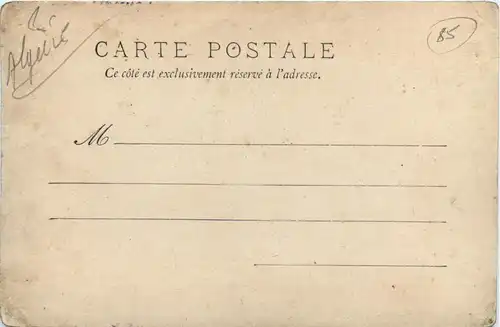 Algérie
85
CARTE POSTALE
Ce côté est exclusivement réservé à l'adresse.
M